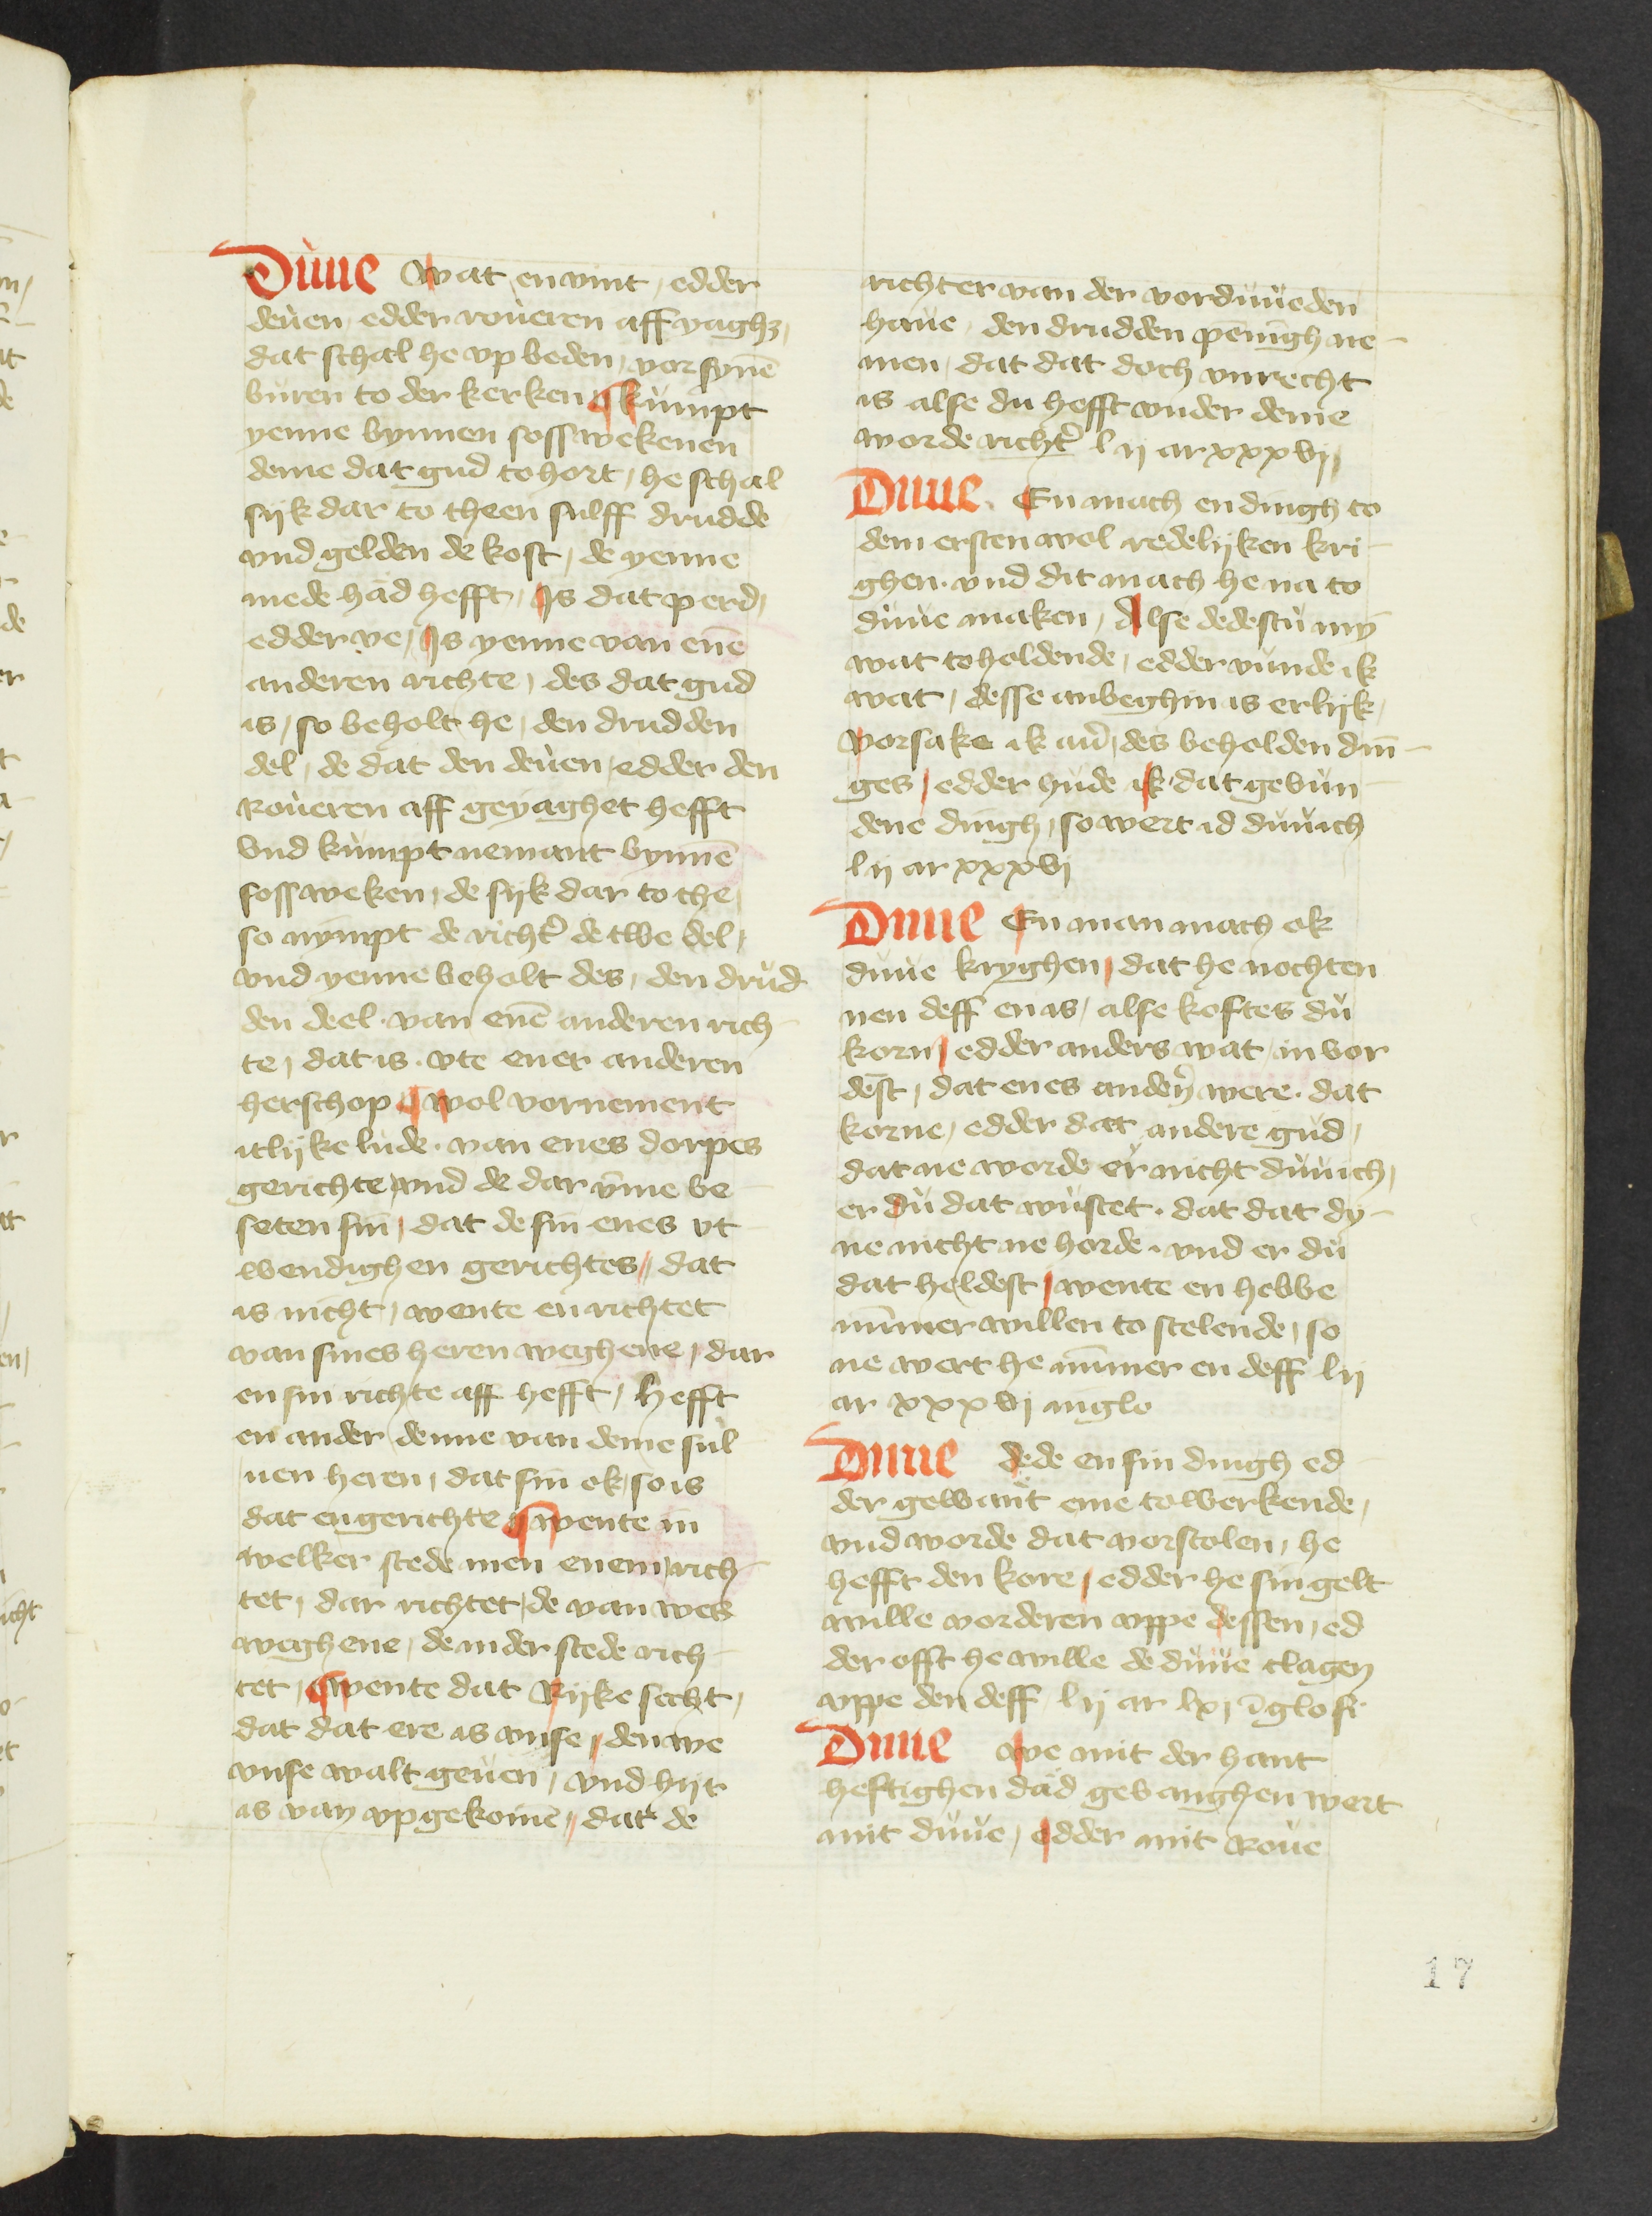 Duue Wat en vint, edder
deuen edder roueren aff yaghz,
dat schal he vp beden, vor synē
buren to der kerken ¶ kumpt
yenne bynnen soss wekenen
deme dat gud to hort, he schal
sijk dar to theen sulff drudde
vnd gelden de kost, de yenne
mede hād hefft, Is dat perd,
edder ve, Is yenne van enē
anderen richte, des dat gud
is, so beholt he, den drudden
del, de dat den deuen, edder den
Roueren aff geyaghet hefft
vnd kumpt nemant bynnē
soss weken, de sijk dar to the,
so nympt de richt' de twe del,
vnd yenne beholt des, den drud
den deel. van enē anderen rich-
te, dat is. vte ener anderen
herschop ¶ wol vornement
itlijke lude. van enes dorpes
gerichte vnd de dar ynne be-
seten sin, dat de sin enes vt
wendighen gerichtes, dat
is nicht, wente en richtet
van sines heren weghene, dar
en sin richte aff hefft, hefft
en ander denne van deme sul
uen heren, dat sin ok, so is
dat en gerichte ¶ wente in
welker stede men enem rich-
tet, dar richtet de van wes
weghene, de in der stede rich-
tet, ¶ wente dat Rijke secht,
dat dat ere is vnse, den we
vnse walt geuen, vnd hijr
is van vpgekomē, dat de
richter van der vorduueden
haue, den drudden penigh ne-
men, dat dat doch vnrecht
is alse du hefft vnder deme
worde richt' l ij ar xxxvij
Duue. En mach en dingh to
dem ersten wol redelijken kri-
ghen. vnd dit mach he na to
duue maken, Alse dedestu my
wat to holdende, edder vunde ik
wat, desse anbeghin is erlijk,
vorsake ik au', des beholden din-
ges, edder hude ik dat gevun-
dene dingh, so wert id duuich
l ij ar xxxvj
Duue En man mach ok
duue kryghen, dat he nochten
nen deff en is, alse koftes du
korn, edder anders wat, in vor
dest, dat enes anden' were. dat
korne, edder dat andere gud,
dat ne worde er nicht duuich,
er du dat wustet. dat dat dy-
ne nicht ne horde. vnd er du
dat heldest, wente en hebbe
nūmer willen to stelende, so
ne wert he nūmer en deff l ij
ar xxxvj in glo
Duue dede en sin dingh ed
der gewant eme to werkende,
vnd worde dat vorstolen, he
hefft den kore, edder he sin gelt
wille vorderen vppe dessen, ed
der offt he wille de duue clagen
vppe den deff l ij ar lxj ī glose
Duue we mit der hant
heftighen dād gevanghen wert
mit duue, edder mit Roue
17